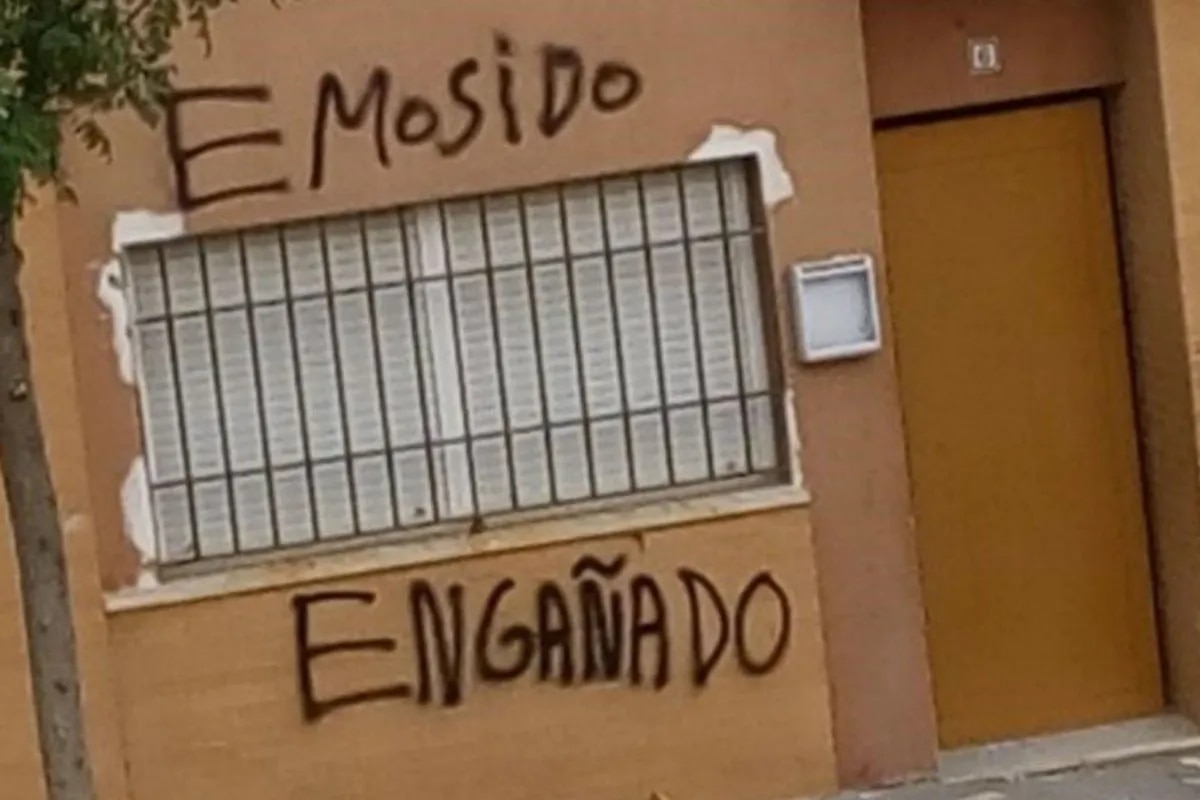 EMoSiDo
ENGAÑADO